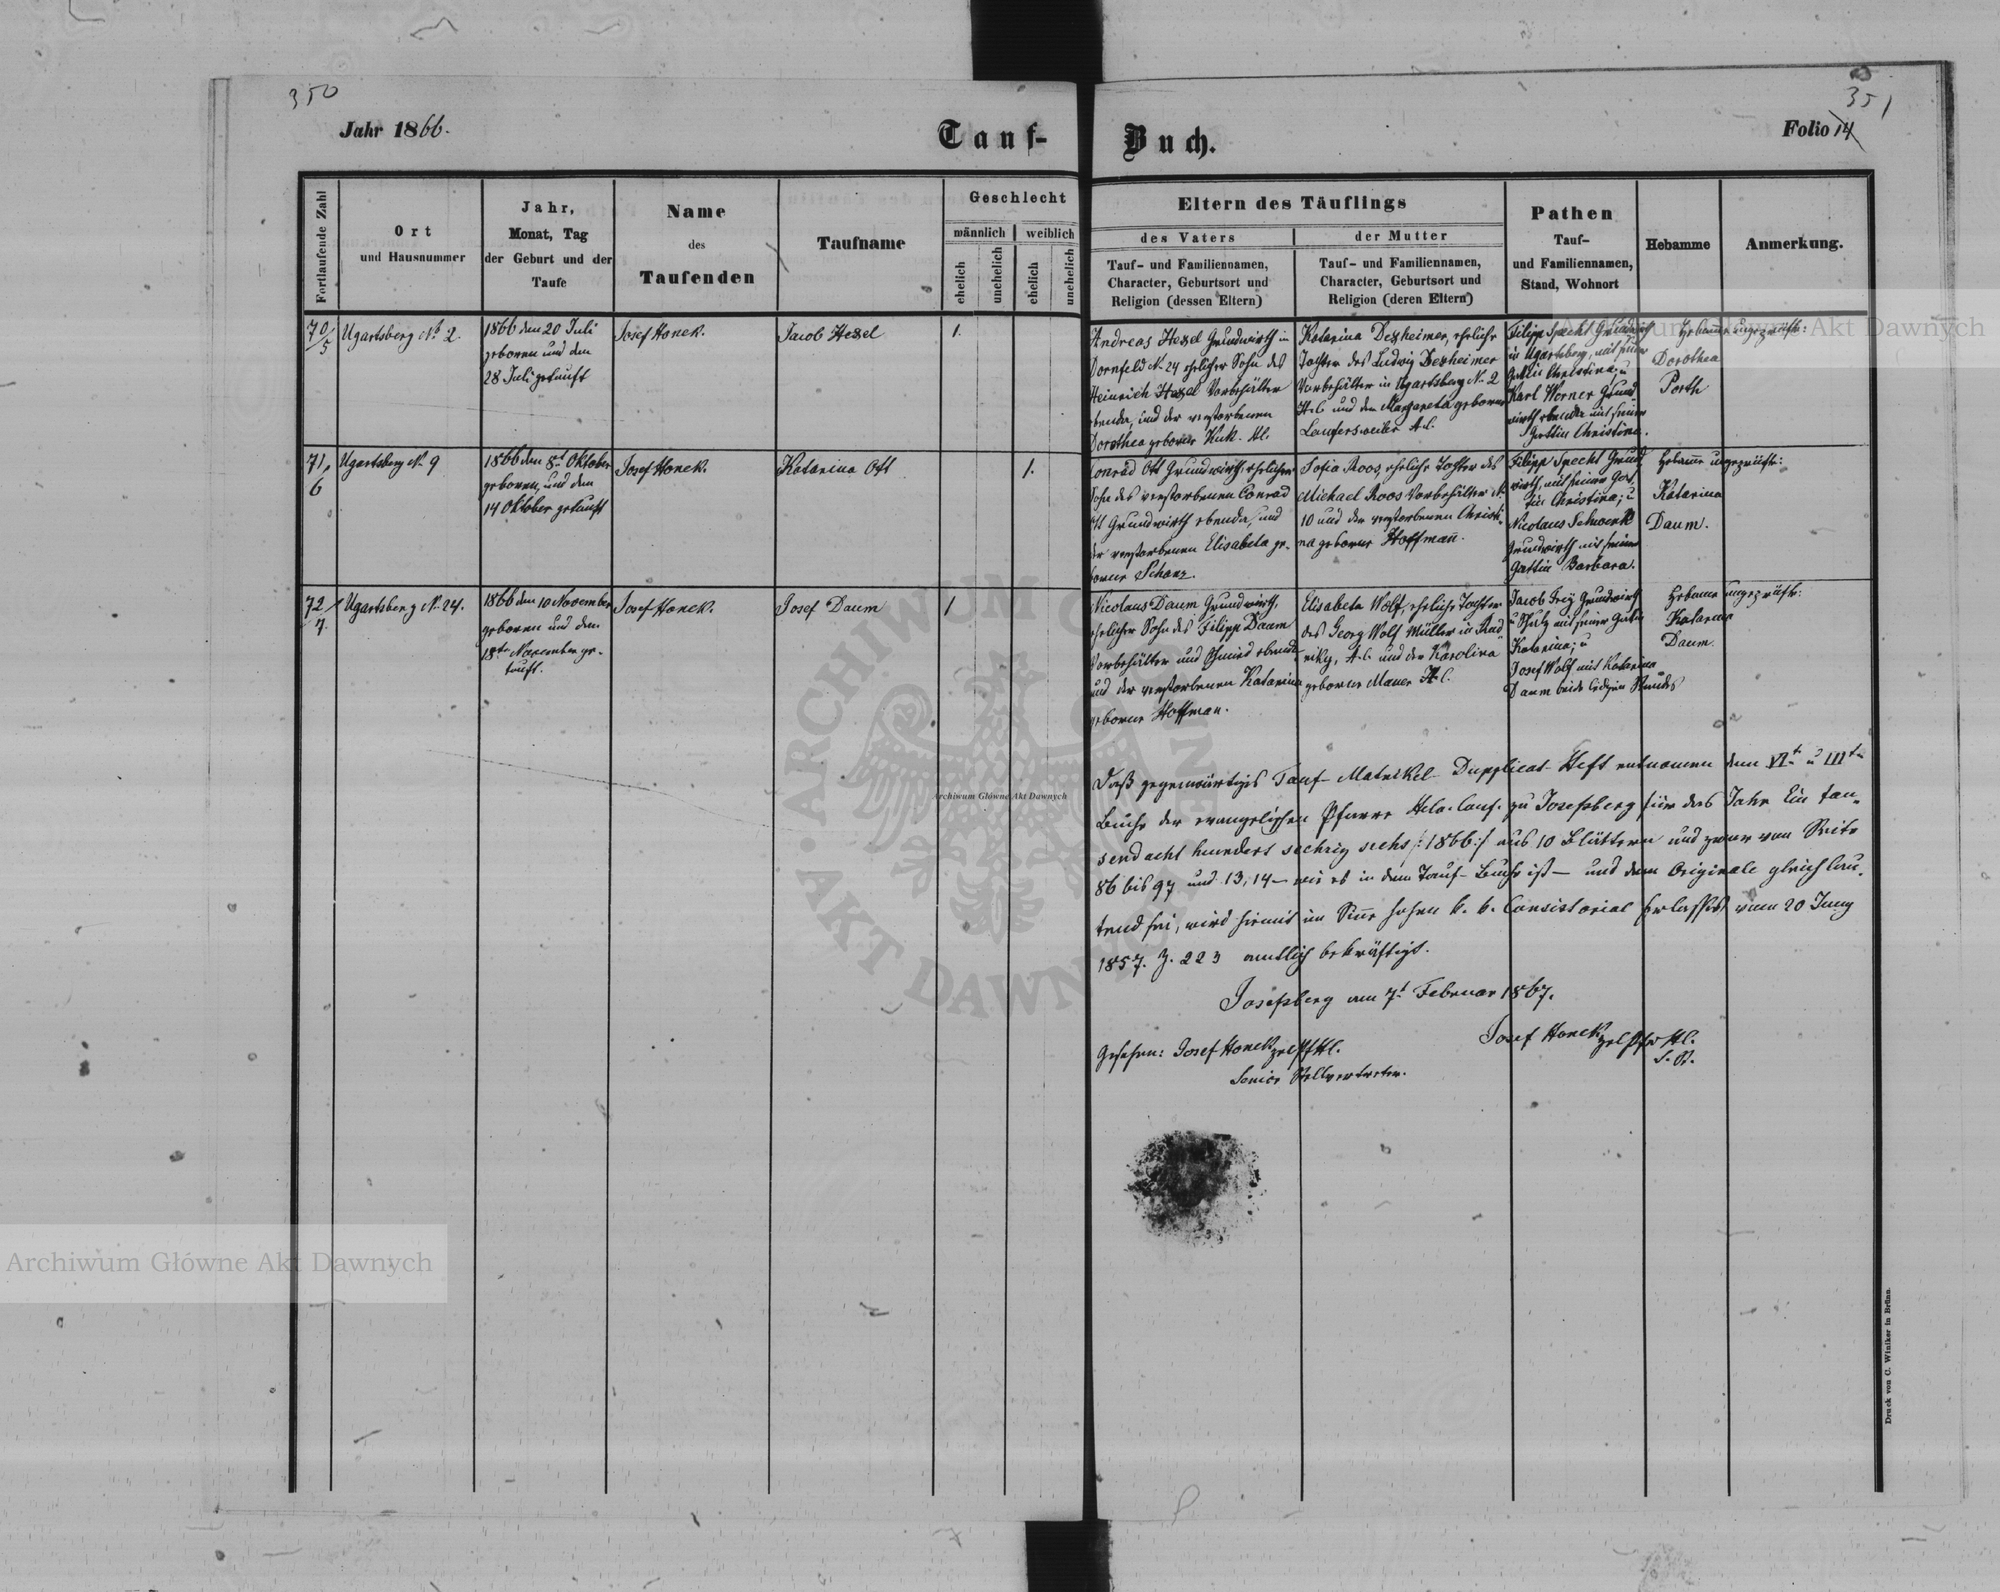 350
351
Jahr 1866.
Tauf-
Buch.
Folio 14
Fortlaufende Zahl
Ort
und Hausnummer
Jahr,
Monat, Tag
der Geburt und der
Taufe
Name
des
Taufenden
Taufname
Geschlecht
männlich
weiblich
ehelich
unehelich
ehelich
unehelich
Eltern des Täuflings
des Vaters
der Mutter
Tauf- und Familiennamen,
Character, Geburtsort und
Religion (dessen Eltern)
Tauf- und Familiennamen,
Character, Geburtsort und
Religion (deren Eltern)
Pathen
Tauf-
und Familiennamen,
Stand, Wohnort
Hebamme
Anmerkung.
70/5
Ugartsberg № 2
1866 den 20 Juli
geboren und den
28 Juli getauft
Josef Honek.
Jacob Hexel
1.
Andreas Hexel Grundwirth in
Dornfeld N. 24 ehelicher Sohn des
Heinrich Hexel Vorbehälter
ebenda, und der verstorbenen
Dorothea geborne Kuk. Hl.
Katarina Dexheimer, eheliche
Tochter des Ludwig Dexheimer
Vorbehälter in Ugartsberg N. 2
H.C. und der Margareta geborne
Laufersweiler A.C.
Filipp Specht Grundwirth
in Ugartsberg, mit seiner
Gattin Christina; u
Karl Werner Grund
wirth ebenda mit seiner
Gattin Christina.
Hebamme ungeprüfte:
Dorothea
Porth
71/6
Ugartsberg N. 9
1866 den 8t Oktober
geboren, und den
14 Oktober getauft
Josef Honek.
Katarina Ott
1.
Conrad Ott Grundwirth, ehelicher
Sohn des verstorbenen Conrad
Ott Grundwirth ebenda, und
der verstorbenen Elisabeta ge-
borne Schanz.
Sofia Roos, eheliche Tochter des
Michael Roos Vorbehälter N.
10 und der verstorbenen Christi-
na geborne Hoffmann.
Filipp Specht Grund
wirth, mit seiner Gat
tin Christina; u
Nicolaus Schwenk
Grundwirth mit seiner
Gattin Barbara.
Hebamme ungeprüfte:
Katarina
Daum.
72/7
Ugartsberg N. 24.
1866 den 10 November
geboren und den
18te November ge-
tauft.
Josef Honek.
Josef Daum
1
Nicolaus Daum Grundwirth,
ehelicher Sohn des Filipp Daum
Vorbehälter und Schmied ebenda
und der verstorbenen Katarina
geborne Hoffman.
Elisabeta Wolf, eheliche Tochter
des Georg Wolf Müller in Rud
niky, A.C. und der Karolina
geborne Mauer H.C.
Jacob Frey Grundwirth
u Schulz mit seiner Gattin
Katarina; u
Josef Wolf mit Katarina
Daum beide ledigen Standes
Hebamme ungeprüfte:
Katarina
Daum.
Daß gegenwärtiges Tauf-Matrikel-Dupplicat-Heft entnomen dem VIt u IIIt
Buche der evangelischen Pfarre Helv. Conf. zu Josefsberg für das Jahr Ein tau-
send acht hundert sechzig sechs /:1866:/ aus 10 Blättern und zwar von Seite
86 bis 97 und 13, 14 – wie es in dem Tauf-Buche ist – und dem Originale gleich lau-
tend sei, wird hiemit im Sinne hohen k. k. Consistorial Erlasses vom 20 Juny
1857. Z. 223 amtlich bekräftigt.
Josefsberg am 7t Februar 1867.
Josef Honek
Gesehen: Josef Honek
Senior Stellvertreter.
Archiwum Główne Akt Dawnych
Archiwum Główne Akt Dawnych
Archiwum Główne Akt Dawnych
ARCHIWUM GŁÓWNE AKT DAWNYCH
Druck von C. Winiker in Brünn.